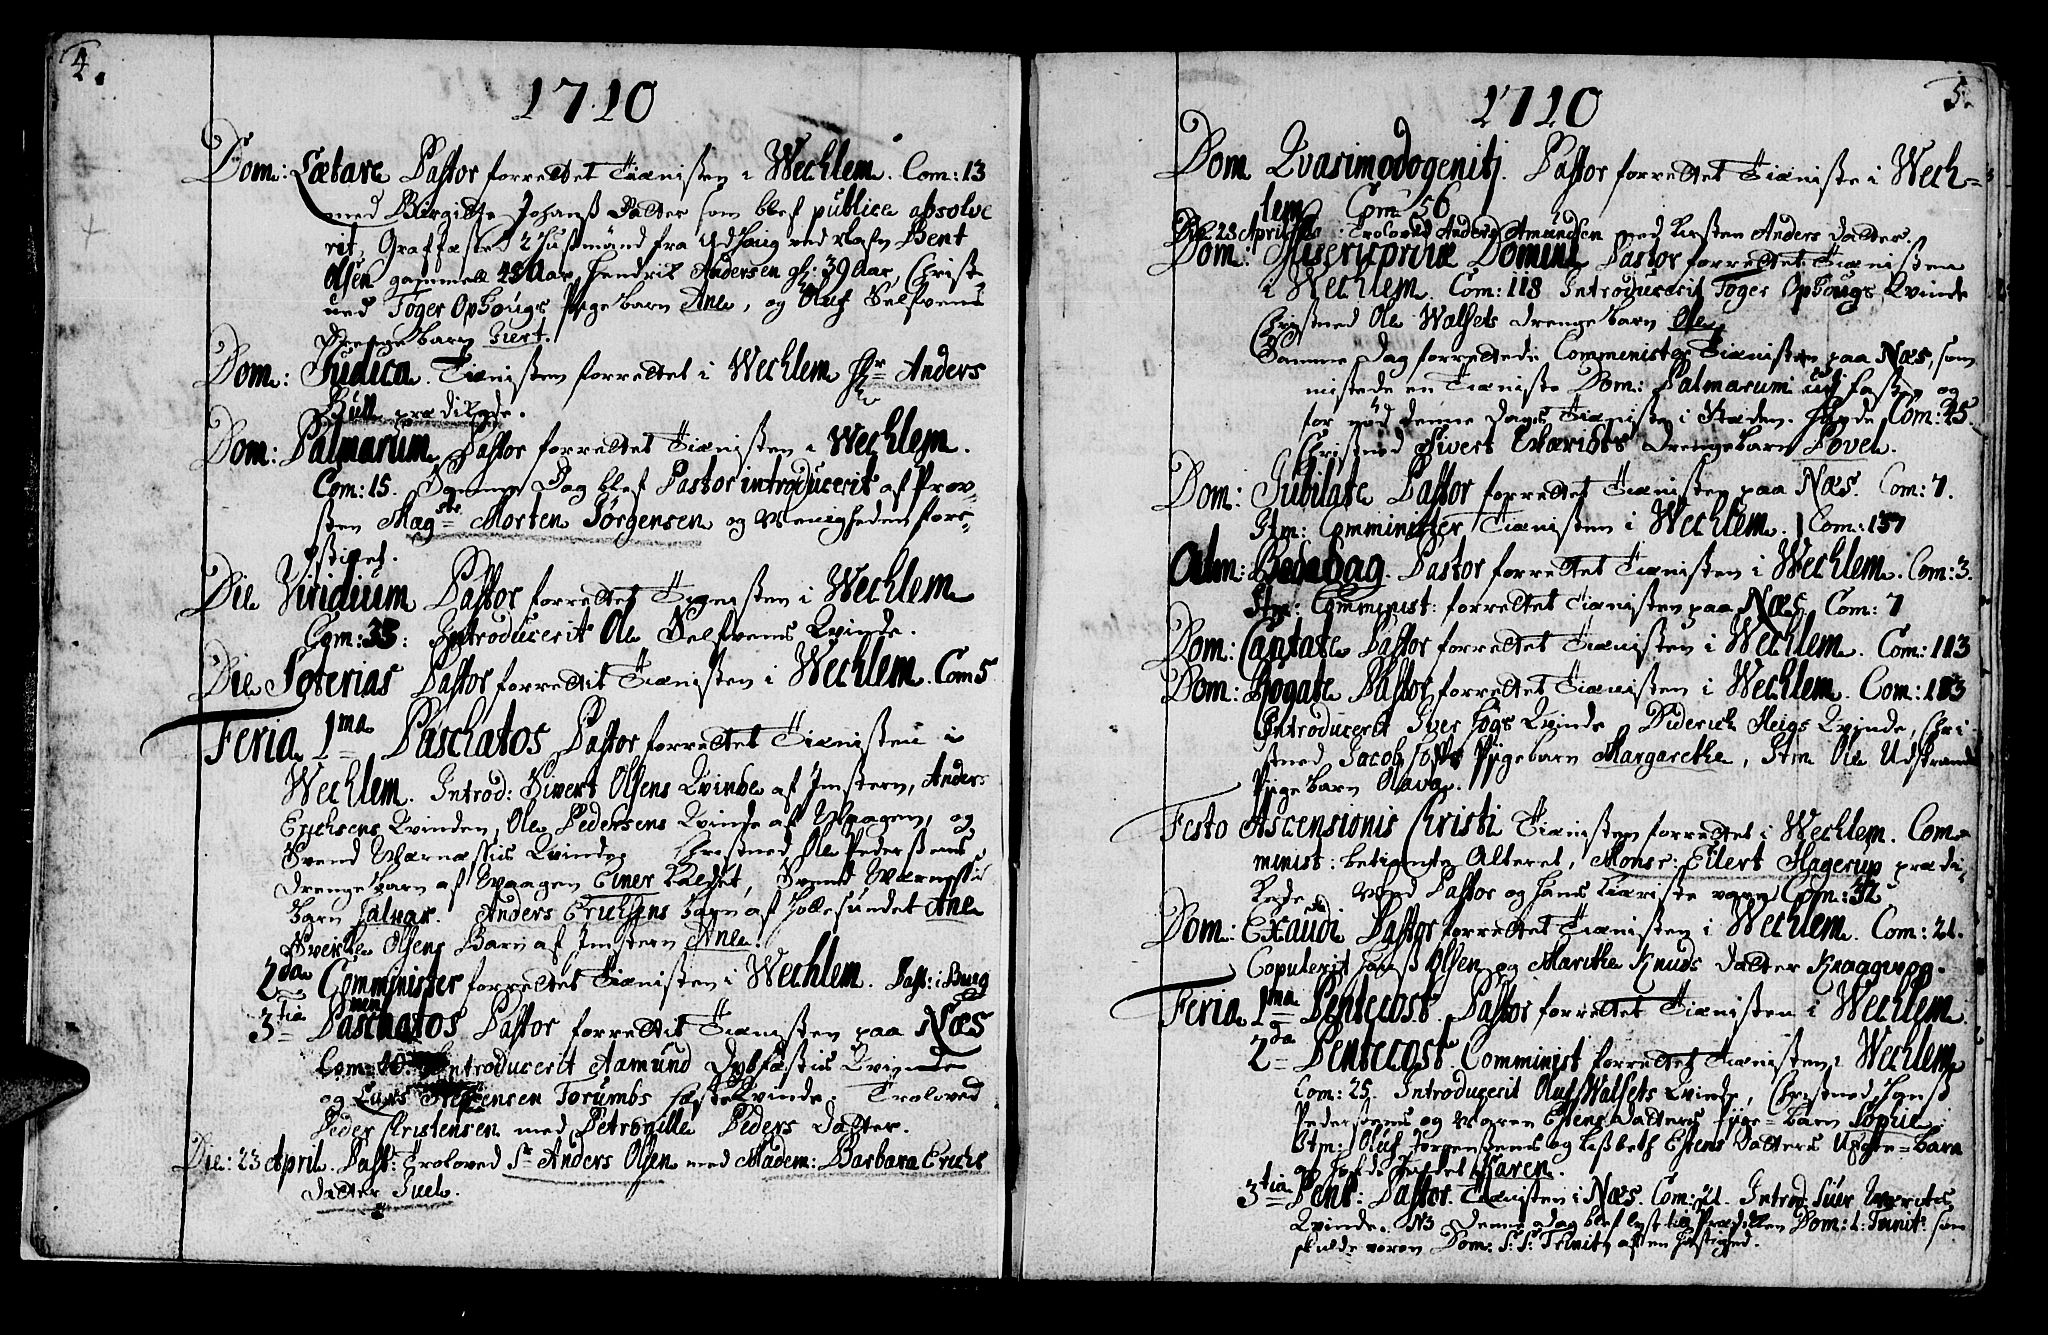 4.
1710
Dom: Lætare Pastor forrettet Tienisten i Wechlem. Com: 13
med Birgitte Johans Datter som blef publice absolve
ret, Graffæstet 2 Husmænd fra Udhaug ved Nafn Bent
Olsen gammell 45 Aar, Hendrik Andersen gl: 39 Aar, Christ
ned Tøger Ophougs Pigebarn Ane, og Oluf Selfvens
Drengebarn Siert.
Dom: Judica. Tienisten forrettet i Wechlem Hr Anders
Bull prædikede.
Dom: Palmarum Pastor forrettet Tienisten i Wechlem.
Com: 15. Samme Dag blef Pastor introducerit af Prov-
sten Magstr Morten Jørgensen og Menigheden fore-
stillet.
Die Viridium Pastor forrettet Tienisten i Wechlem
Com: 33: Introducerit Ole Selfvens Qvinde.
Die Soterias Pastor forrettit Tienisten i Wechlem. Com 5
Feria 1ma Paschatos Pastor forrettet Tienisten i
Wechlem. Introd: Sivert Olsens Qvinde af Imstern, Anders
Erichsens Qvinden, Ole Pedersens Qvinde af Vaagen, og
Svend Værnæssis Qvinde. Christned Ole Pedersens
Drengebarn af Vaagen Einer Kaldet, Svend Wærnessis
barn Halvar. Anders Erichsens barn af Hollesundet Ane
Olsens Barn af Imstern Ane.
2da Comminister forrettet Tienisten i Wechlem. Past: i Burg
3tia Paschatos Pastor forrettit Tienisten paa Næs
Com: 40. Introducerit Aamund Dybfæstis Qvinde
og Lars Torumbs Qvinde. Troloved
Peder Christensen med Petronille Peders Datter.
Die: 23 April. Past: Troloved Sr Anders Olsen med Madem: Barbara Erichs
datter Juel.
5.
1710
Dom Qvasimodogenitj. Pastor forrettet Tieniste i Wech-
lem Com: 56
Die 23 April Troloved Anders Amundsen med Kirsten Anders datter.
Dom: Misericordiæ Domini Pastor forrettet Tienisten
i Wechlem. Com: 118 Introducerit Tøger Ophougs Qvinde
Christned Ole Walsets drengebarn Ole
Samme Dag forrettede Comminister Tienisten paa Næs, som
mistede en Tieniste Dom: Palmarum udj fasten og
for nød denne dags Tienisten i Steden. Hafde Com: 45.
Christned Sivert Drengebarn Povel.
Dom: Jubilate Pastor forrettet Tienisten paa Næs. Com: 7.
Itm: Comminister Tienisten i Wechlem. Com: 137
Alm: Bededag. Pastor forrettet Tienisten i Wechlem. Com: 3.
Itm: Comminist: forrettet Tienisten paa Næs Com: 7
Dom: Cantate Pastor forrettet Tienisten i Wechlem. Com: 113
Dom: Rogate Pastor forrettet Tienisten i Wechlem. Com: 113
Introducerit Iver Qvinde, Diderich Heigs Qvinde, Chri
stned Jacob Pigebarn Margarethe, Itm Ole Udstrands
Pigebarn Olava.
Festo Ascensionis Christi Tienisten forrettet i Wechlem. Com-
minist: betiente Alteret, Monsr: Eilert Hagerup prædi-
kede. Med Pastor og hans Kæriste vare Com: 32
Dom: Exaudi Pastor forrettet Tienisten i Wechlem. Com: 21.
Copulerit Hans Olsen og Marithe Knuds datter Kraagvog.
Feria 1ma Pentecost. Pastor forrettet Tienisten i Wechlem
2da Pentecost. Comminist forrettet Tienisten i Wechlem
Com: 25. Introducerit Oluf Walsets Qvinde, Christned Hans
Pedersens og Maren Estens datters Pige-barn Sophie
Itm: Oluf Jørgensens og Lisbeth Estens datters Uægte-barn
Karen.
3tia Pent: Pastor Tienisten i Næs. Com: 21. Introd
Qvinde. NB Denne dag blef lyst til Prædiken Dom: 1: Trinit: som
skulde været Dom: S: S: Trinit.